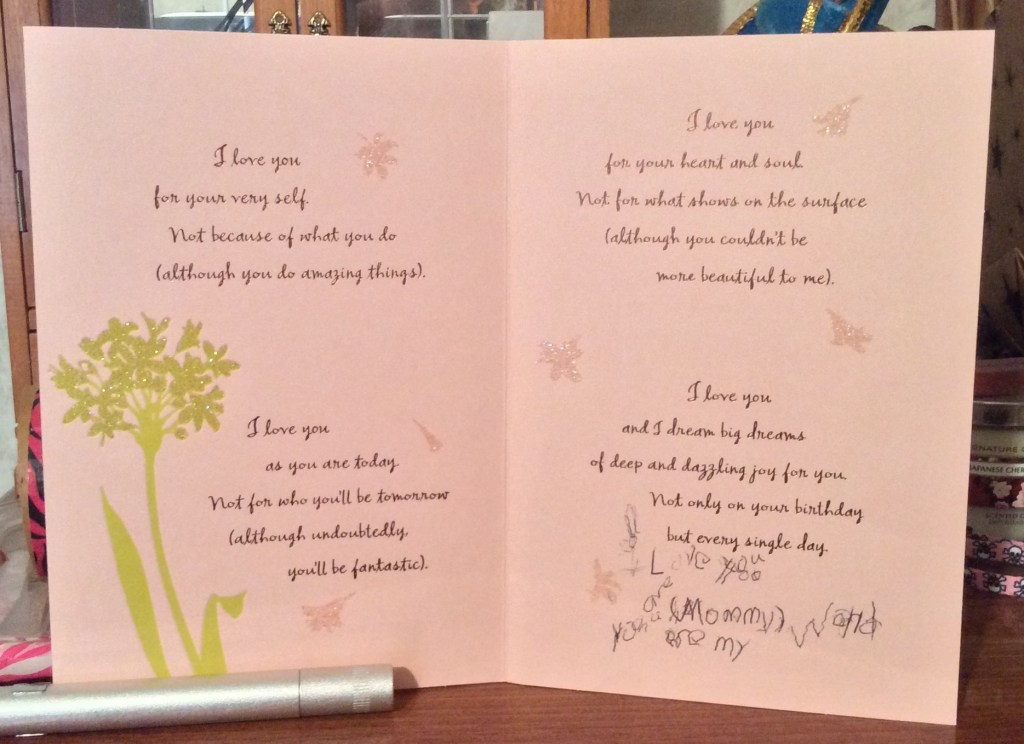 I love you
for your very self.
Not because of what you do
(although you do amazing things).
I love you
as you are today.
Not for who you'll be tomorrow
(although undoubtedly,
you'll be fantastic).
I love you
for your heart and soul.
Not for what shows on the surface
(although you couldn't be
more beautiful to me).
I love you
and I dream big dreams
of deep and dazzling joy for you.
Not only on your birthday
but every single day.
Love you
are (Mommy)
are my
JAPANESE CHER